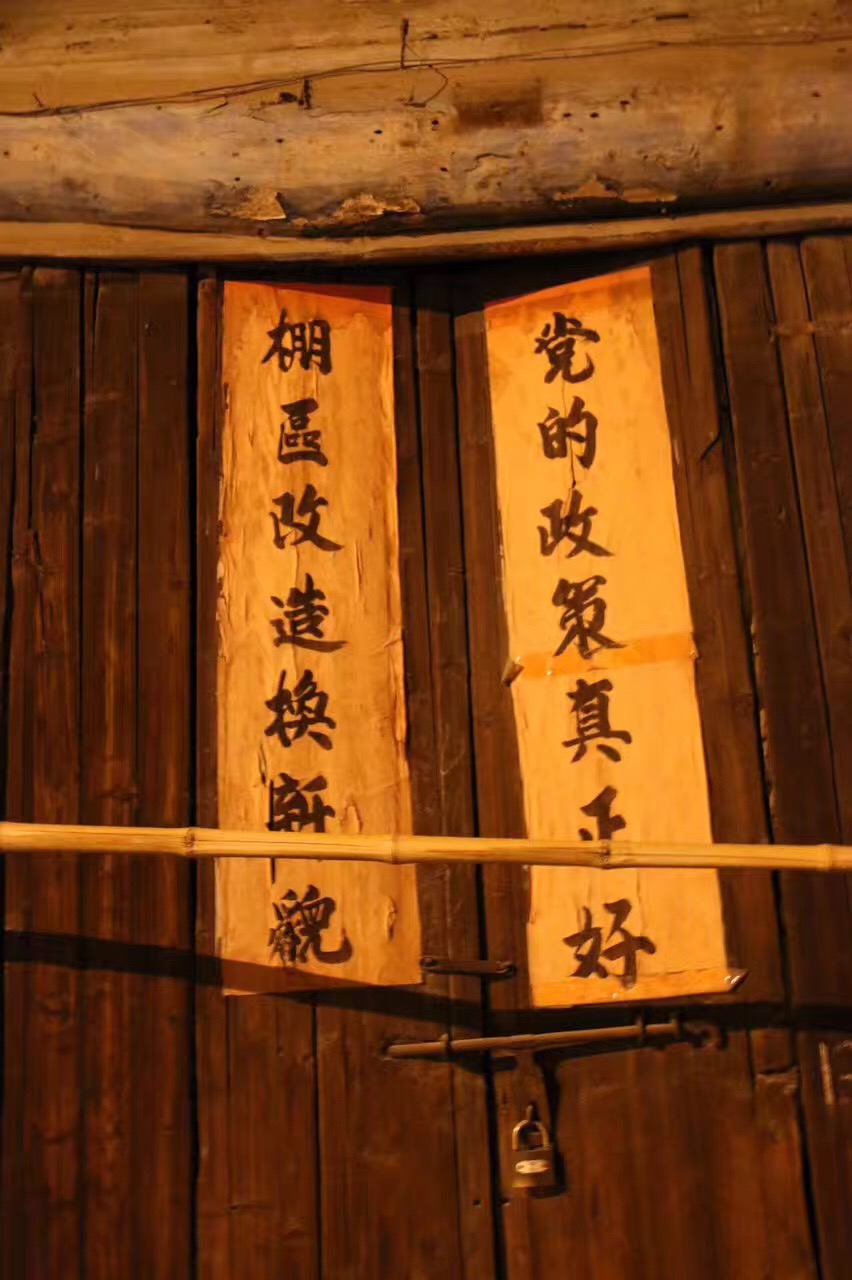 党的政策真正好
棚區改造換新貌